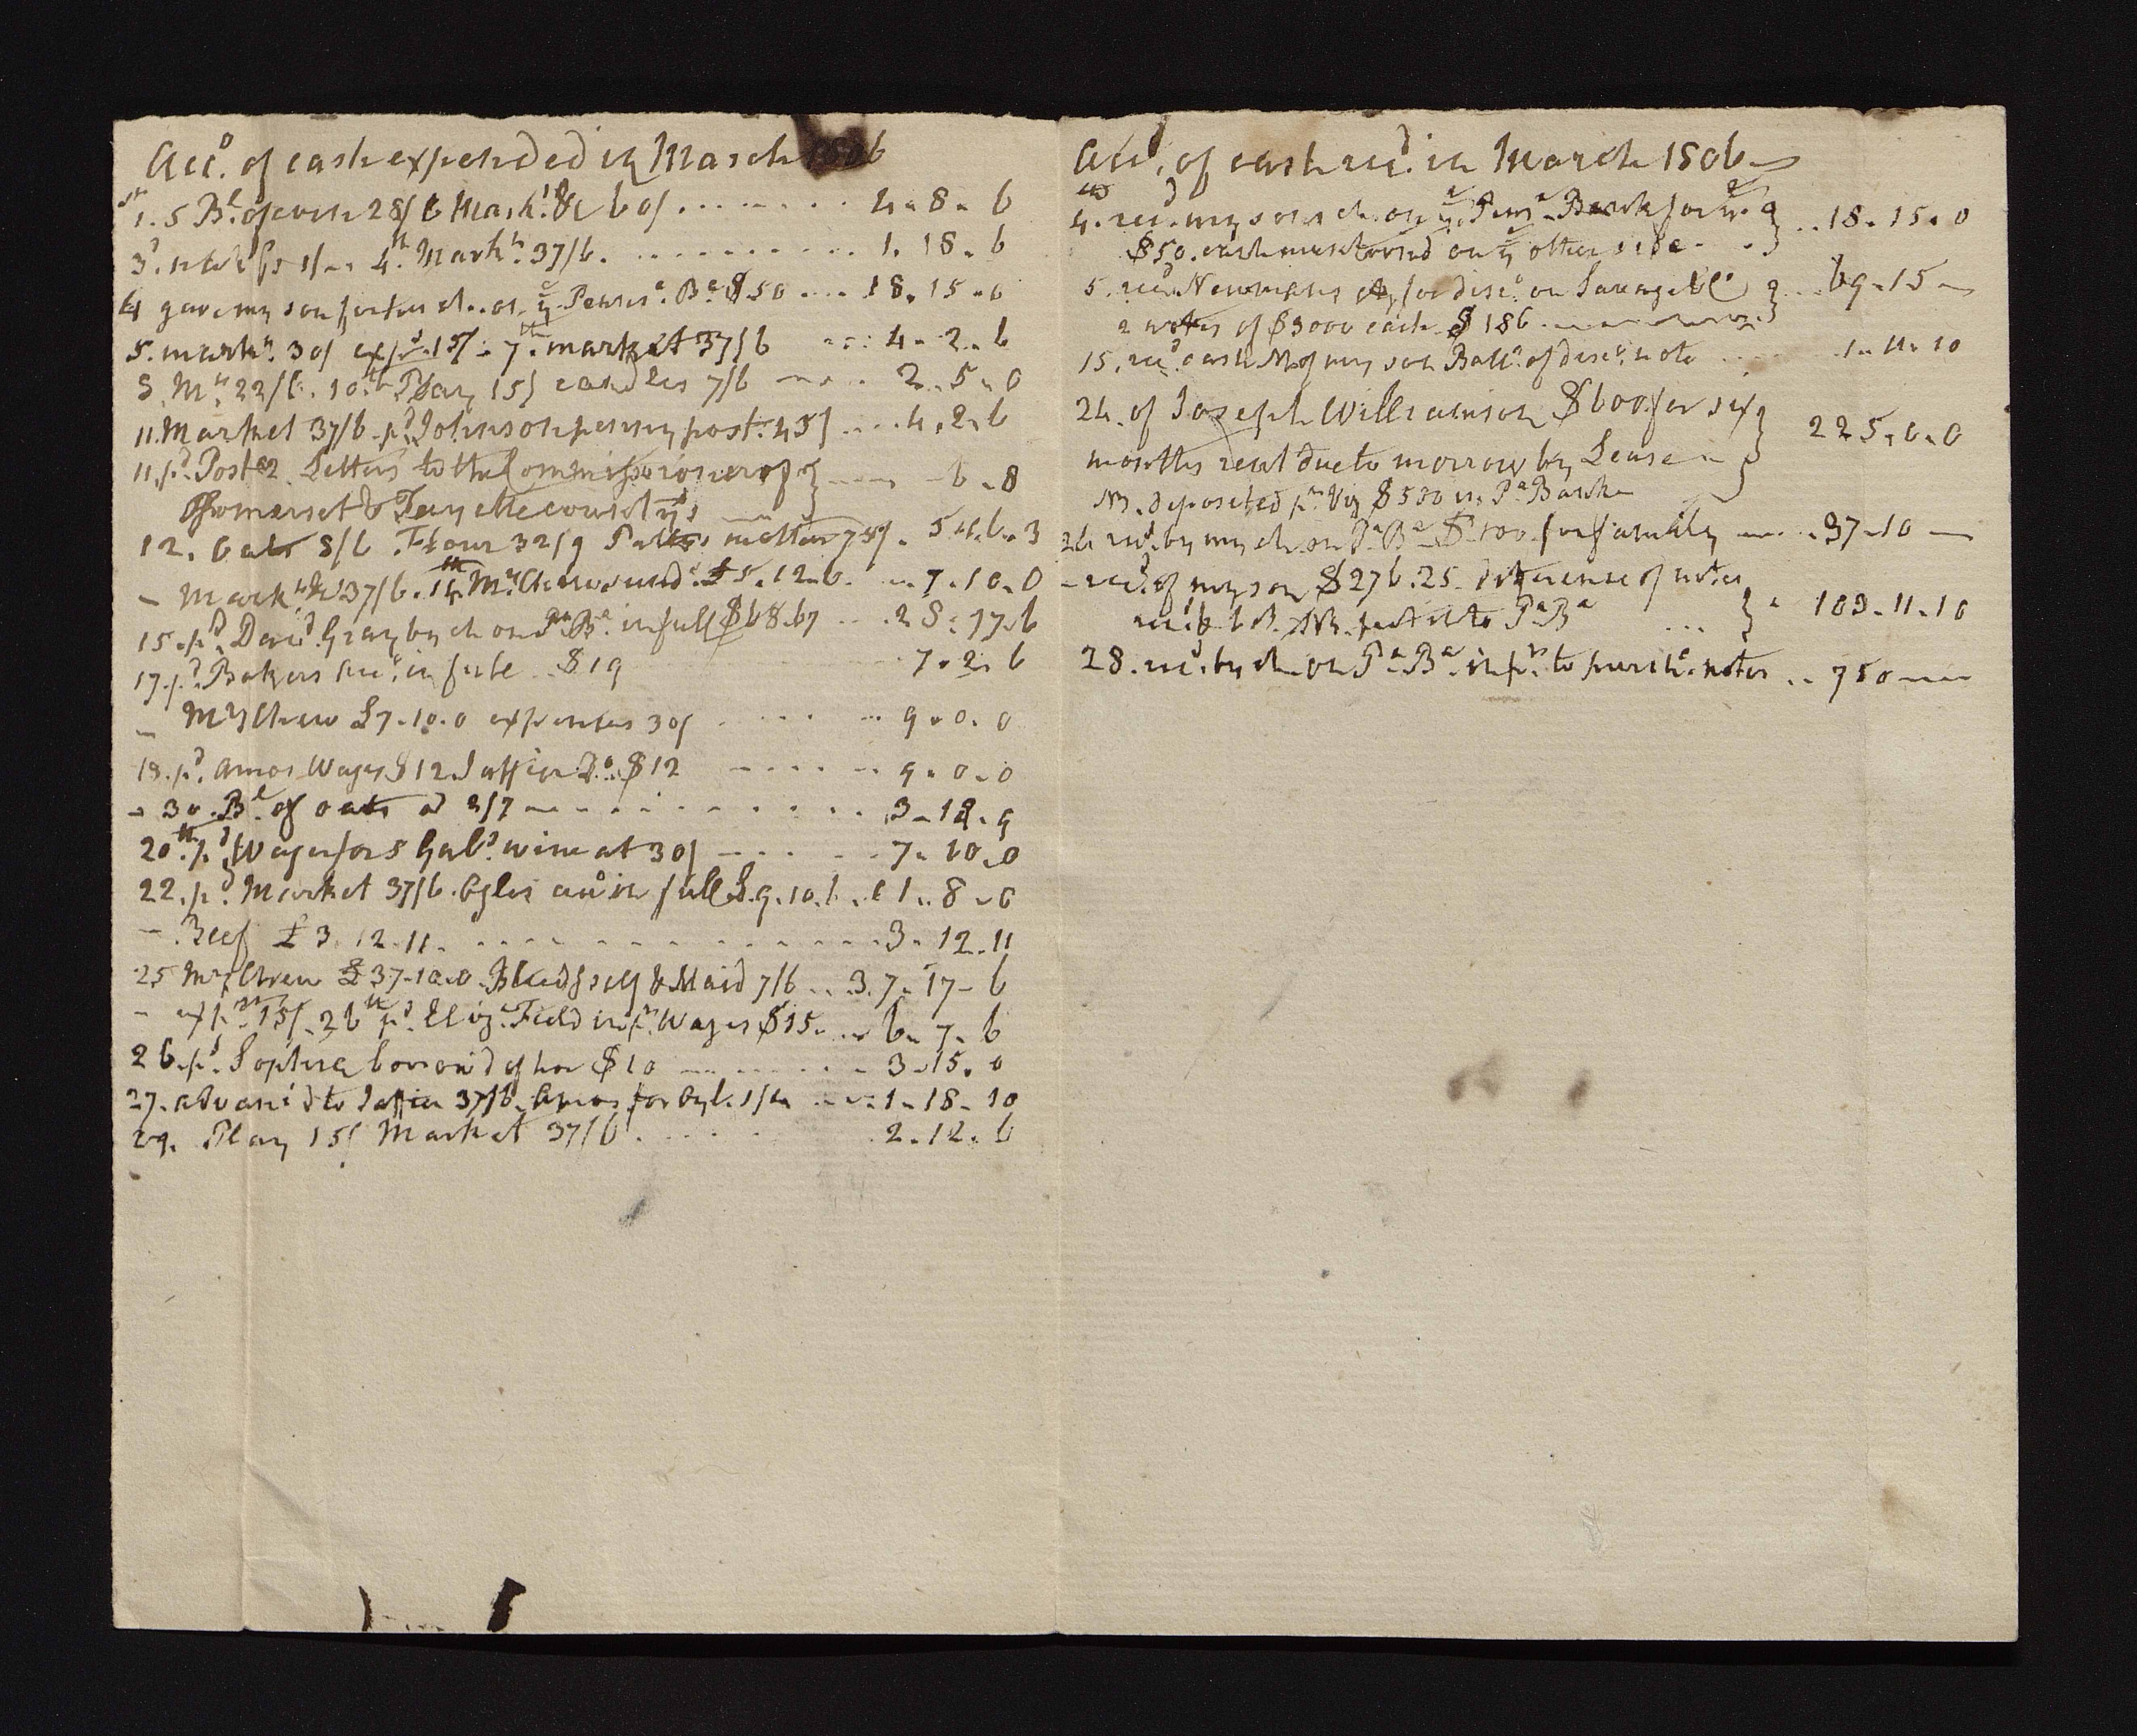 Acco. of cash expended in March 1806
1st. 5 Bl. of corn 28/6 Markt. &c 60/ ........ 4-8-6
3d. 1/- 4th Markt. 37/6 .......... 1.18.6
4 gave my son for his ch. on ye Pennsa. Ba. $50 .... 18.15.0
5. markt. 30/ exps. 15/ - 7th. market 37/6 .... 4-2-6
8. Mt. 22/6. 10th Play 15/ candles 7/6 ---- 2.5.0
11. Market 37/6 pd. Johnson penny post. 45/ .... 4.2.6
11. pd. Post 2 Letters to the Commissioners of } ---- -6-8
Somerset & Fayette countys
12. Oats 8/6 Flour 32/9 mattur 75/. 5.16.3
- Markt. &c 37/6. 14th Mrs. Chew sund. £5.12.6. .. 7.10.0
15. pd. David Gray by ch on Pa. Ba. in full $68.67 ... 25.17.6
17. pd. Bakers acct. in full $19 7.2.6
- Mrs Chew £7-10-0 expenses 30/ ....... 9.0.0
19. pd. Amos Wages $12 Do. $12 ------ 9.0.0
- 30 Bl. of oats @ 2/7 ---------- 3-18.9
20th. pd. Wager for 5 Gals. wine at 30/ ------ 7.10.0
22. pd. Market 37/6. Ogles acco in full £.9.10.6 .. 11.8.0
- Beef £3.12.11. .............. 3.12.11
25 Mrs Chew £37-10.0. Bleedg self & Maid 7/6 .. 37.17-6
- exps. 15/. 26th pd. Eliza. Field in pt. Wages $15. .. 6.7.6
26. pd. Sophia borrow'd of her $10 -------- 3.15.0
27. advanc'd to 37/6. Amos for Oyl. 1/4 ---- 1-18-10
29. Play 15/ Market 37/6 ...... 2.12.6
Acco. of cash recd. in March 1806
4. recd. my son's ch. on ye Pensa. Bank for ye } .. 18.15.0
$50. cash mentioned on ye other side -
5. recd. Newmans for disct. on } ... 69-15-
2 notes of $3000 each $186 --------
15. recd. cash of my son Balla. of disct. note ..... 1-11-10
24. of Joseph Williamson $600 for six } 225.0.0
months rent due to morrow by Lease -
NB. deposited pt. viz $500 in Pa Bank
24 recd. by my ch. on Pa. Ba. $100 for family ---- .37-10 --
- recd. of my son $276.25 difference of notes } . 103-11-10
NB. put it to Pa Ba ...
28. recd. by ch. on Pa. Ba. in pt. to purche. notes .. 750 ---